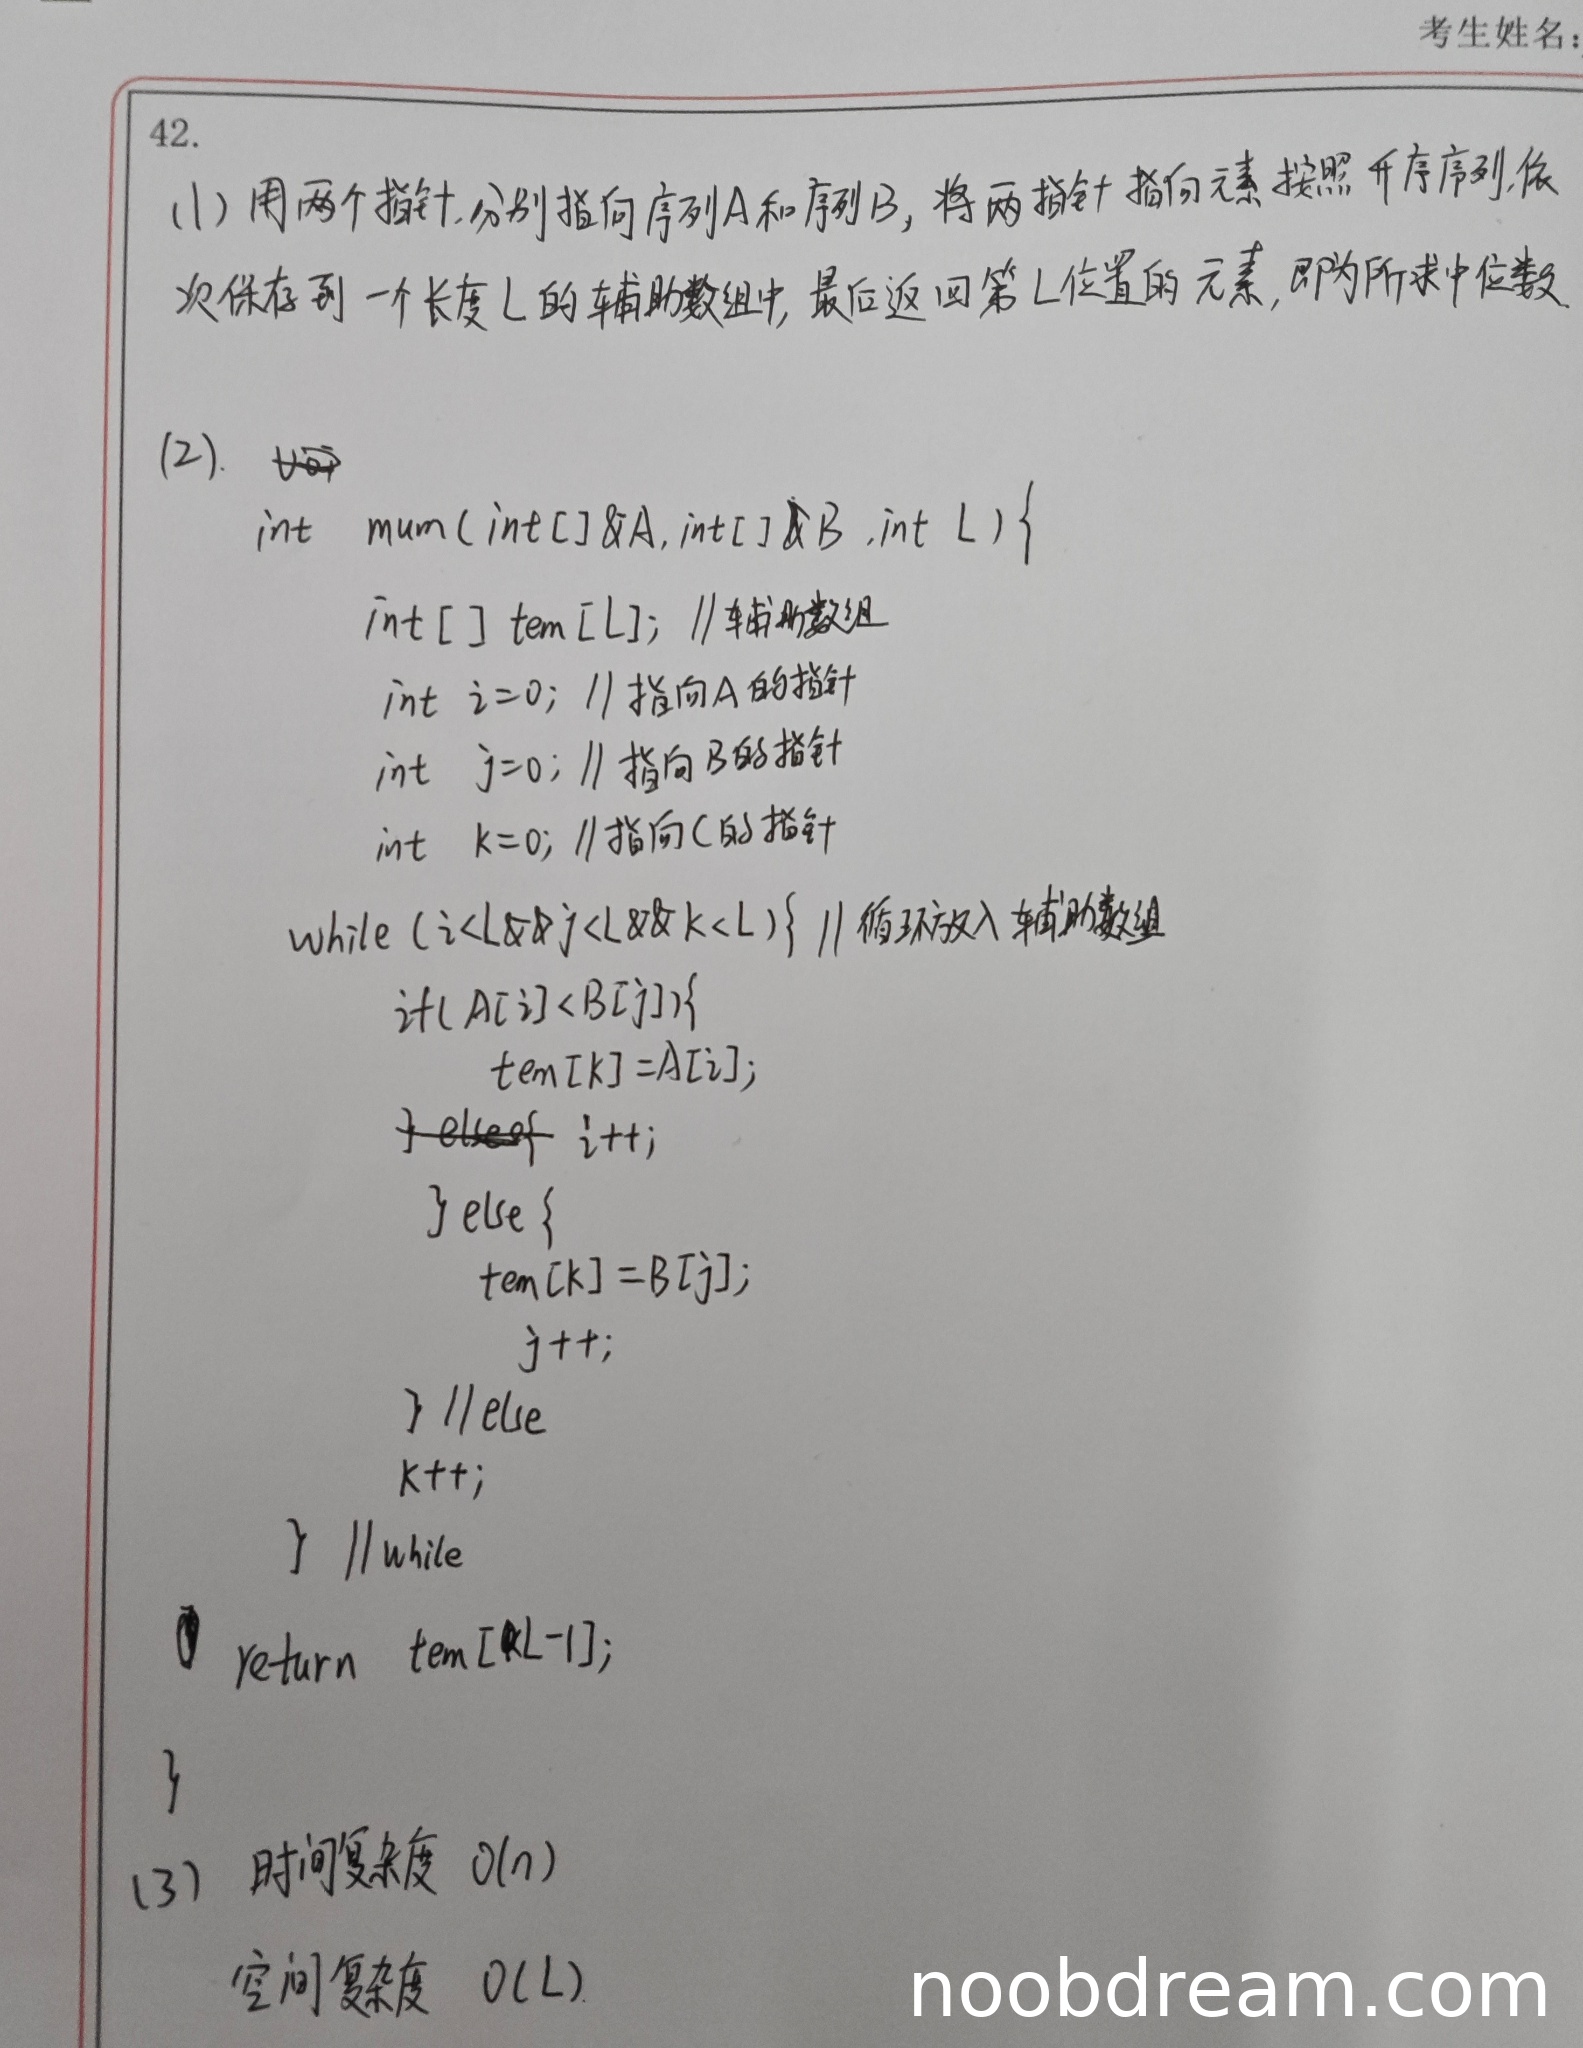 考生姓名:
42.
(1) 用两个指针,分别指向序列A和序列B, 将两指针指向元素按照升序序列,依
次保存到一个长度L的辅助数组中, 最后返回第L位置的元素, 即为所求中位数.
(2).
int mum(int[]&A, int[]&B, int L){
int[] tem[L]; //辅助数组
int i=0; //指向A的指针
int j=0; //指向B的指针
int k=0; //指向C的指针
while (i<L&&j<L&&k<L){ //循环放入辅助数组
if(A[i]<B[j]){
tem[k]=A[i];
} else{ i++;
} else {
tem[k]=B[j];
j++;
} //else
k++;
} //while
return tem[L-1];
}
(3) 时间复杂度 O(n)
空间复杂度 O(L).
noobdream.com